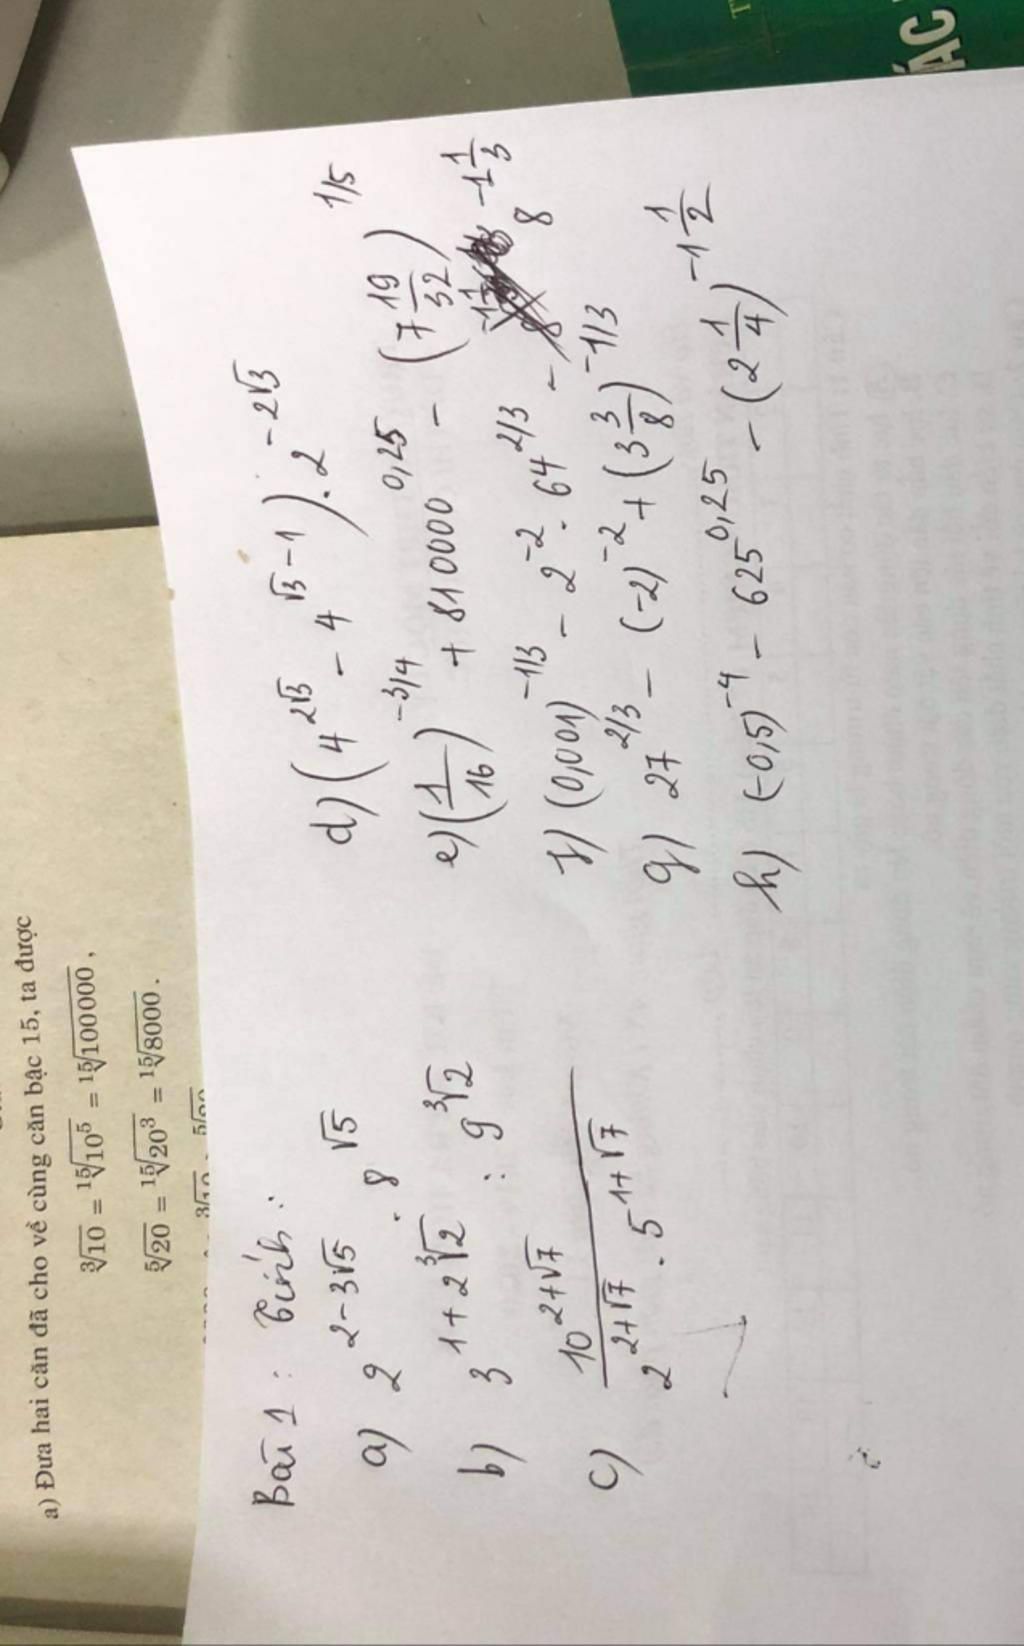 a) Đưa hai căn đã cho về cùng căn bậc 15, ta được
∛10 = ¹⁵√10⁵ = ¹⁵√100000,
⁵√20 = ¹⁵√20³ = ¹⁵√8000.
Bài 1: Tính:
a) 2^(2-3√5) . 8^(√5)
b) 3^(1+2∛2) : 9^(∛2)
c) 10^(2+√7) / (2^(2+√7) . 5^(1+√7))
d) (4^(2√3) - 4^(√3-1)) . 2^(-2√3)
e) (1/16)^(-3/4) + 810000^(0,25) - (7 19/32)^(1/5)
f) (0,001)^(-1/3) - 2^(-2) . 64^(2/3) - 8^(-1 1/3)
g) 27^(2/3) - (-2)^(-2) + (3 3/8)^(-1/3)
h) (-0,5)^(-4) - 625^(0,25) - (2 1/4)^(-1 1/2)
ÁC